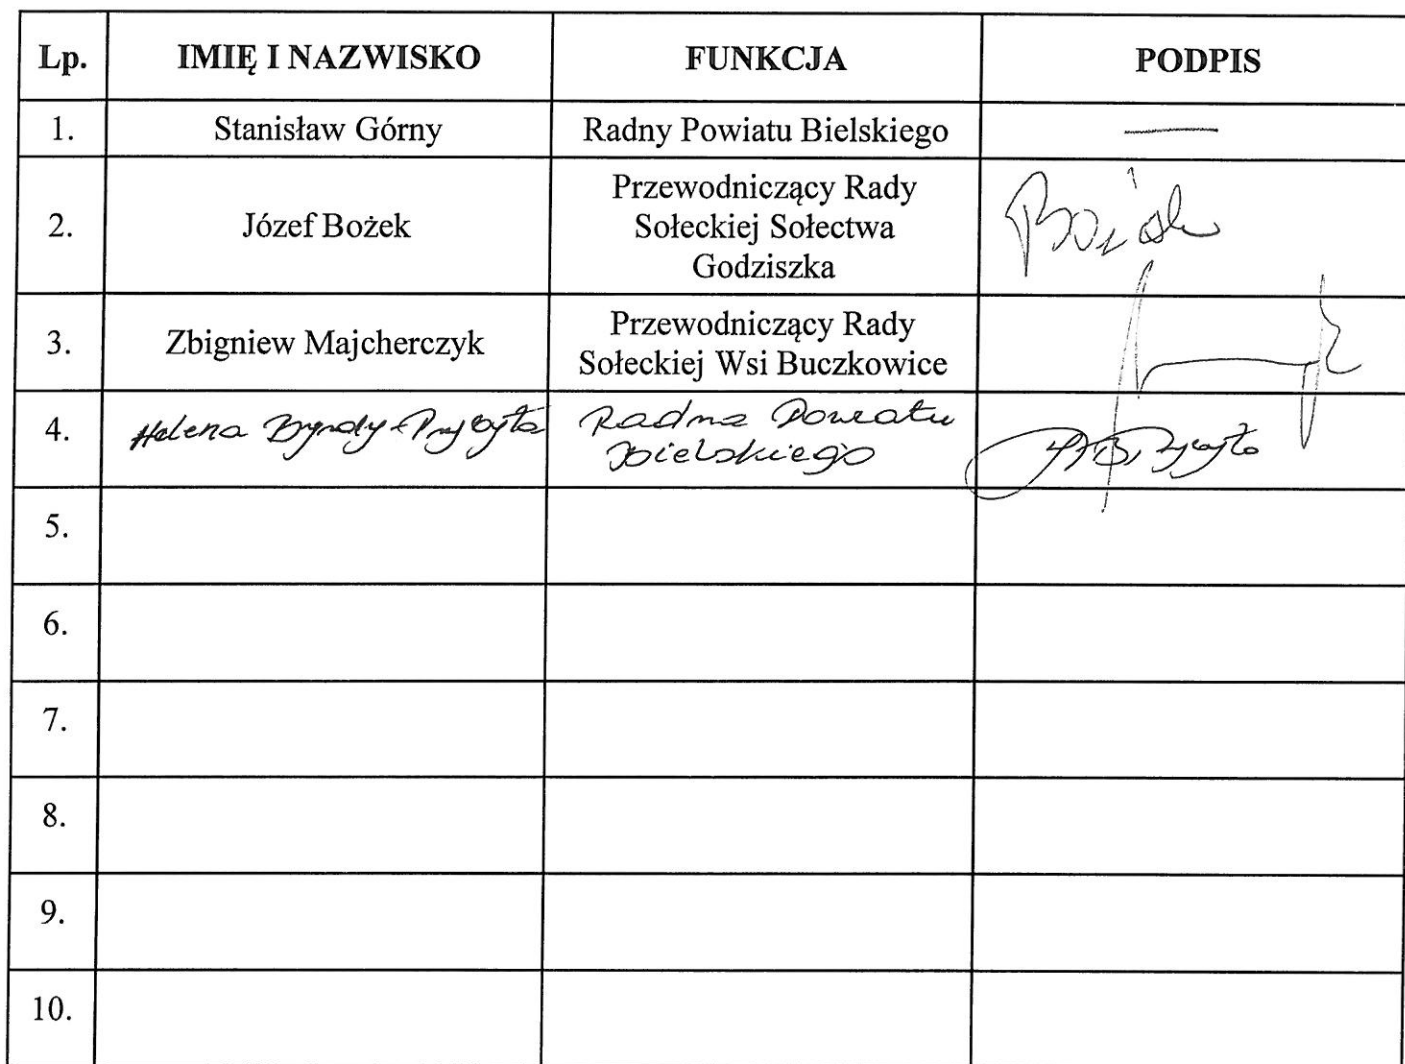 Lp. IMIĘ I NAZWISKO FUNKCJA PODPIS
1. Stanisław Górny Radny Powiatu Bielskiego —
2. Józef Bożek Przewodniczący Rady
Sołeckiej Sołectwa
Godziszka
3. Zbigniew Majcherczyk Przewodniczący Rady
Sołeckiej Wsi Buczkowice
4. Helena Byrdy-Przybyła Radna Powiatu
Bielskiego
5.
6.
7.
8.
9.
10.